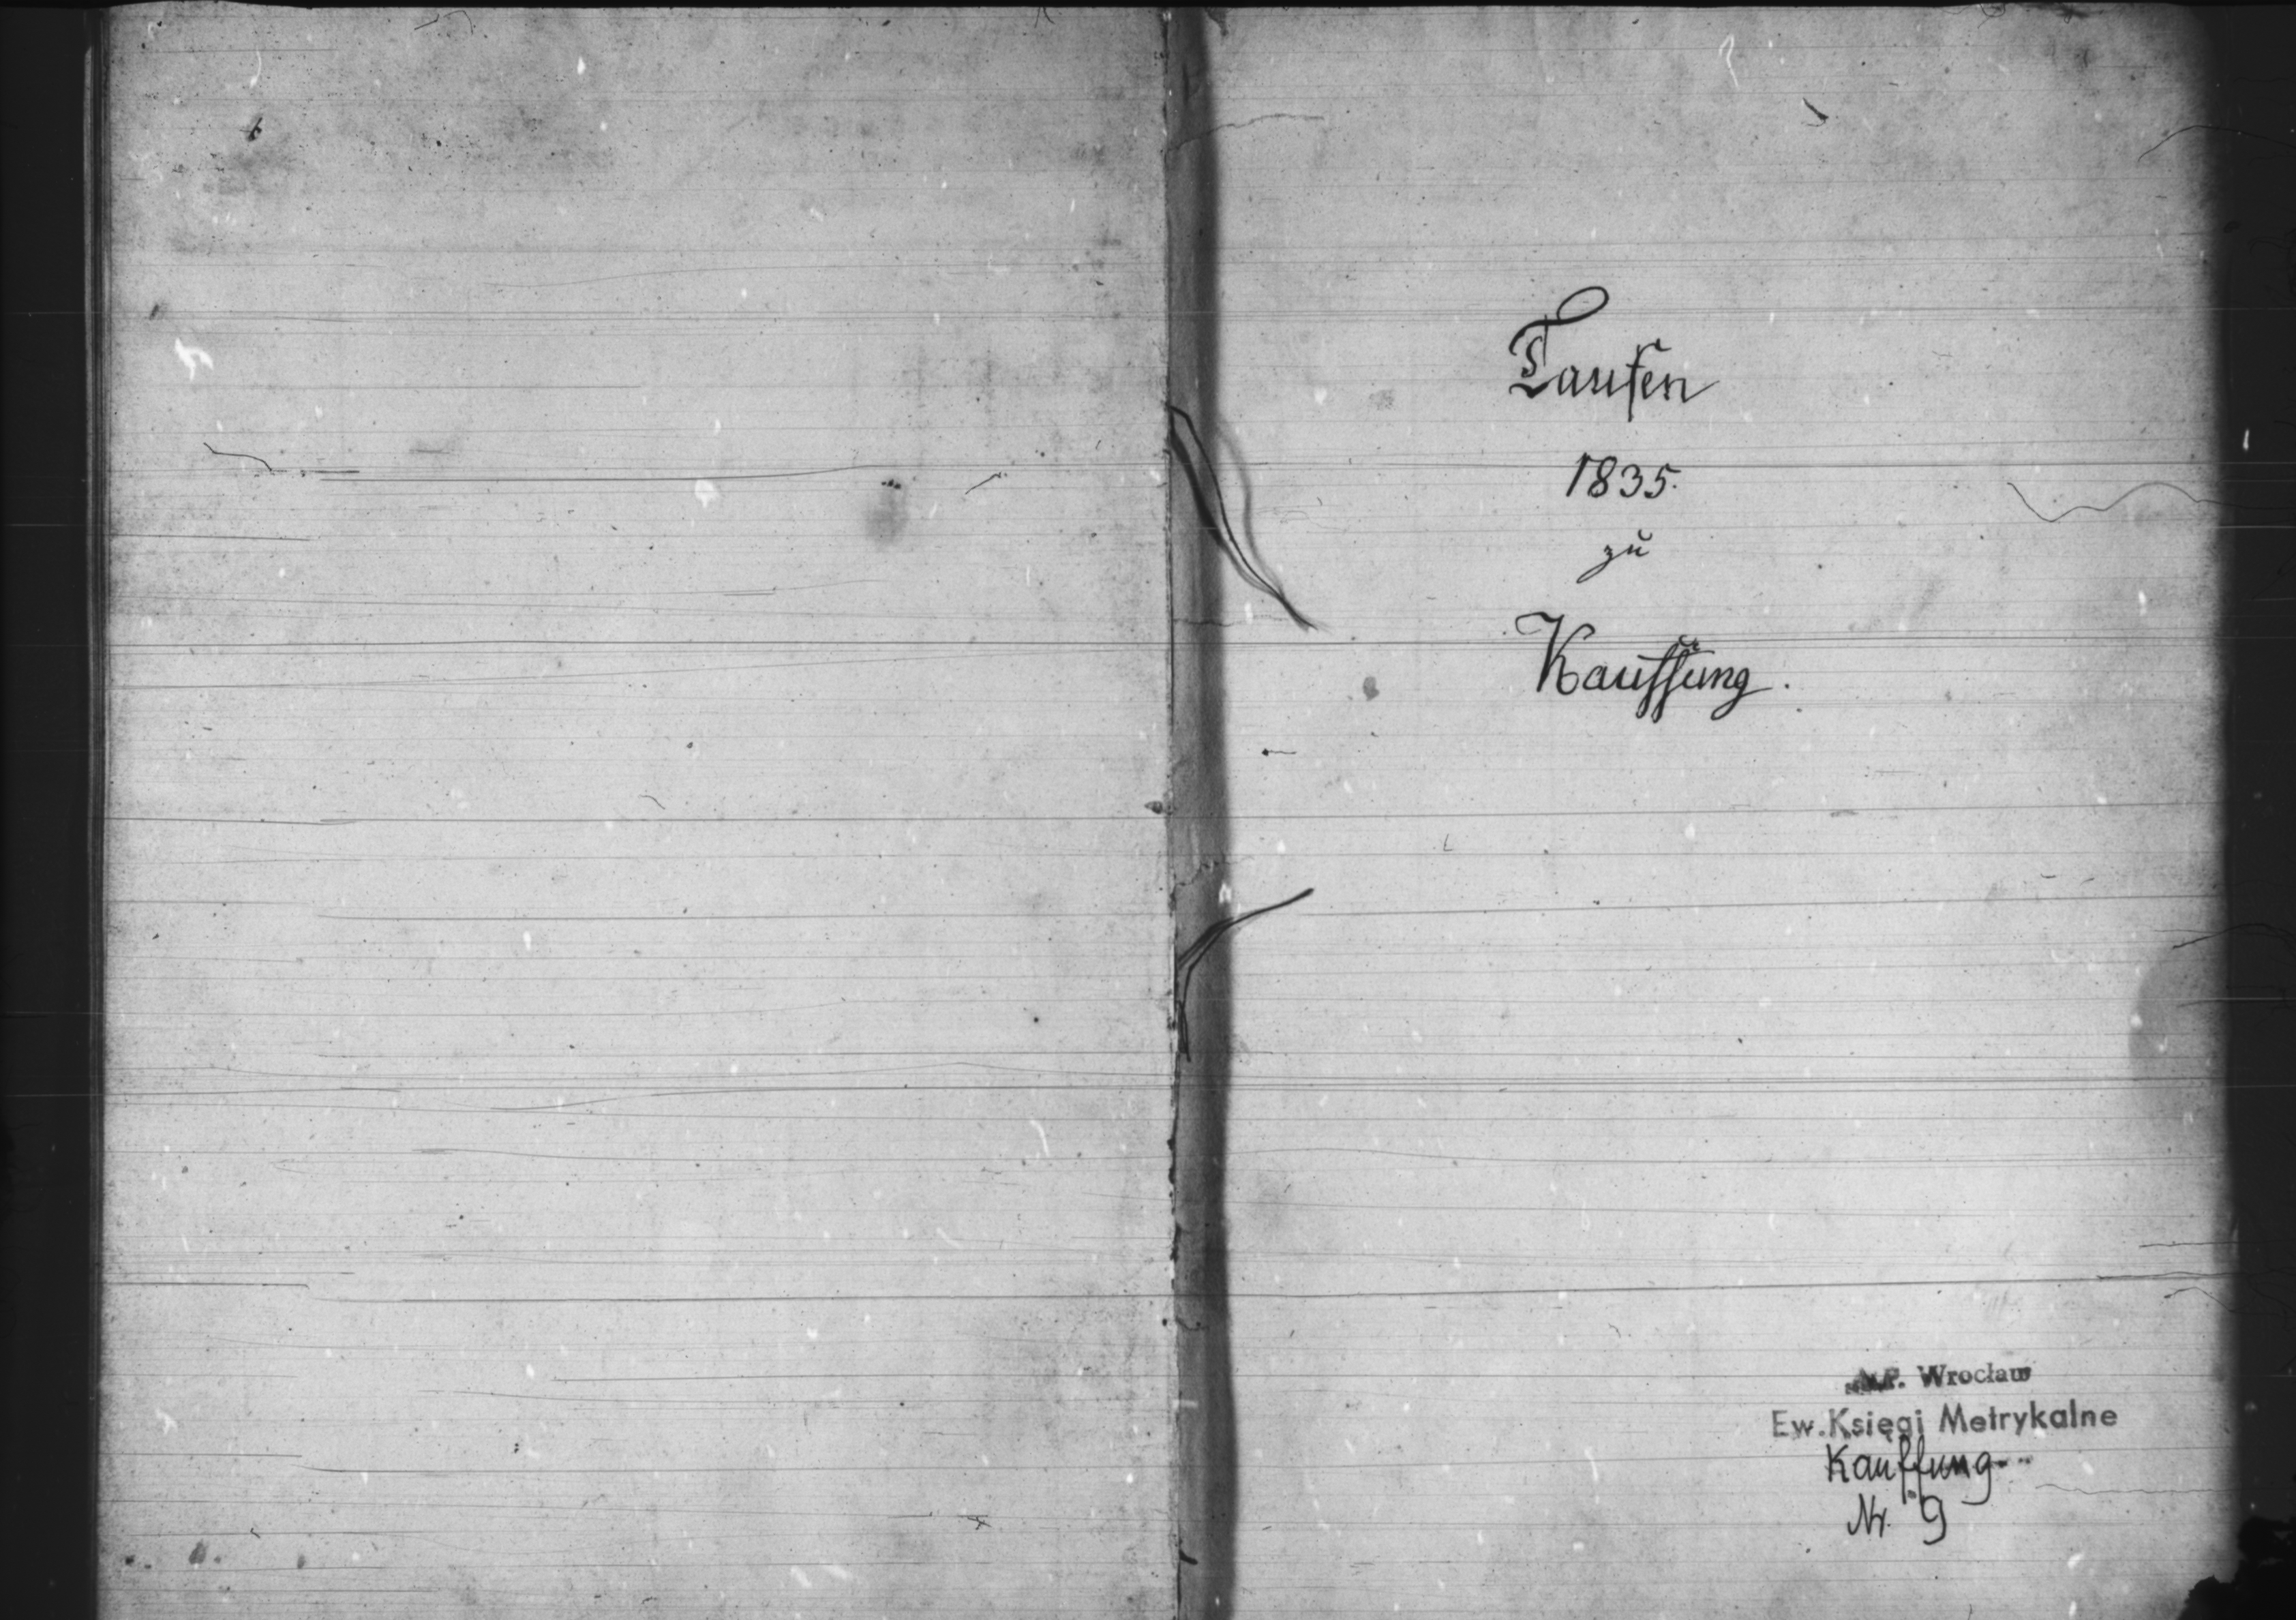 Taufen
1835.
zu
Kauffung.
A.P. Wrocław
Ew. Księgi Metrykalne
Kauffung
Nr. 9